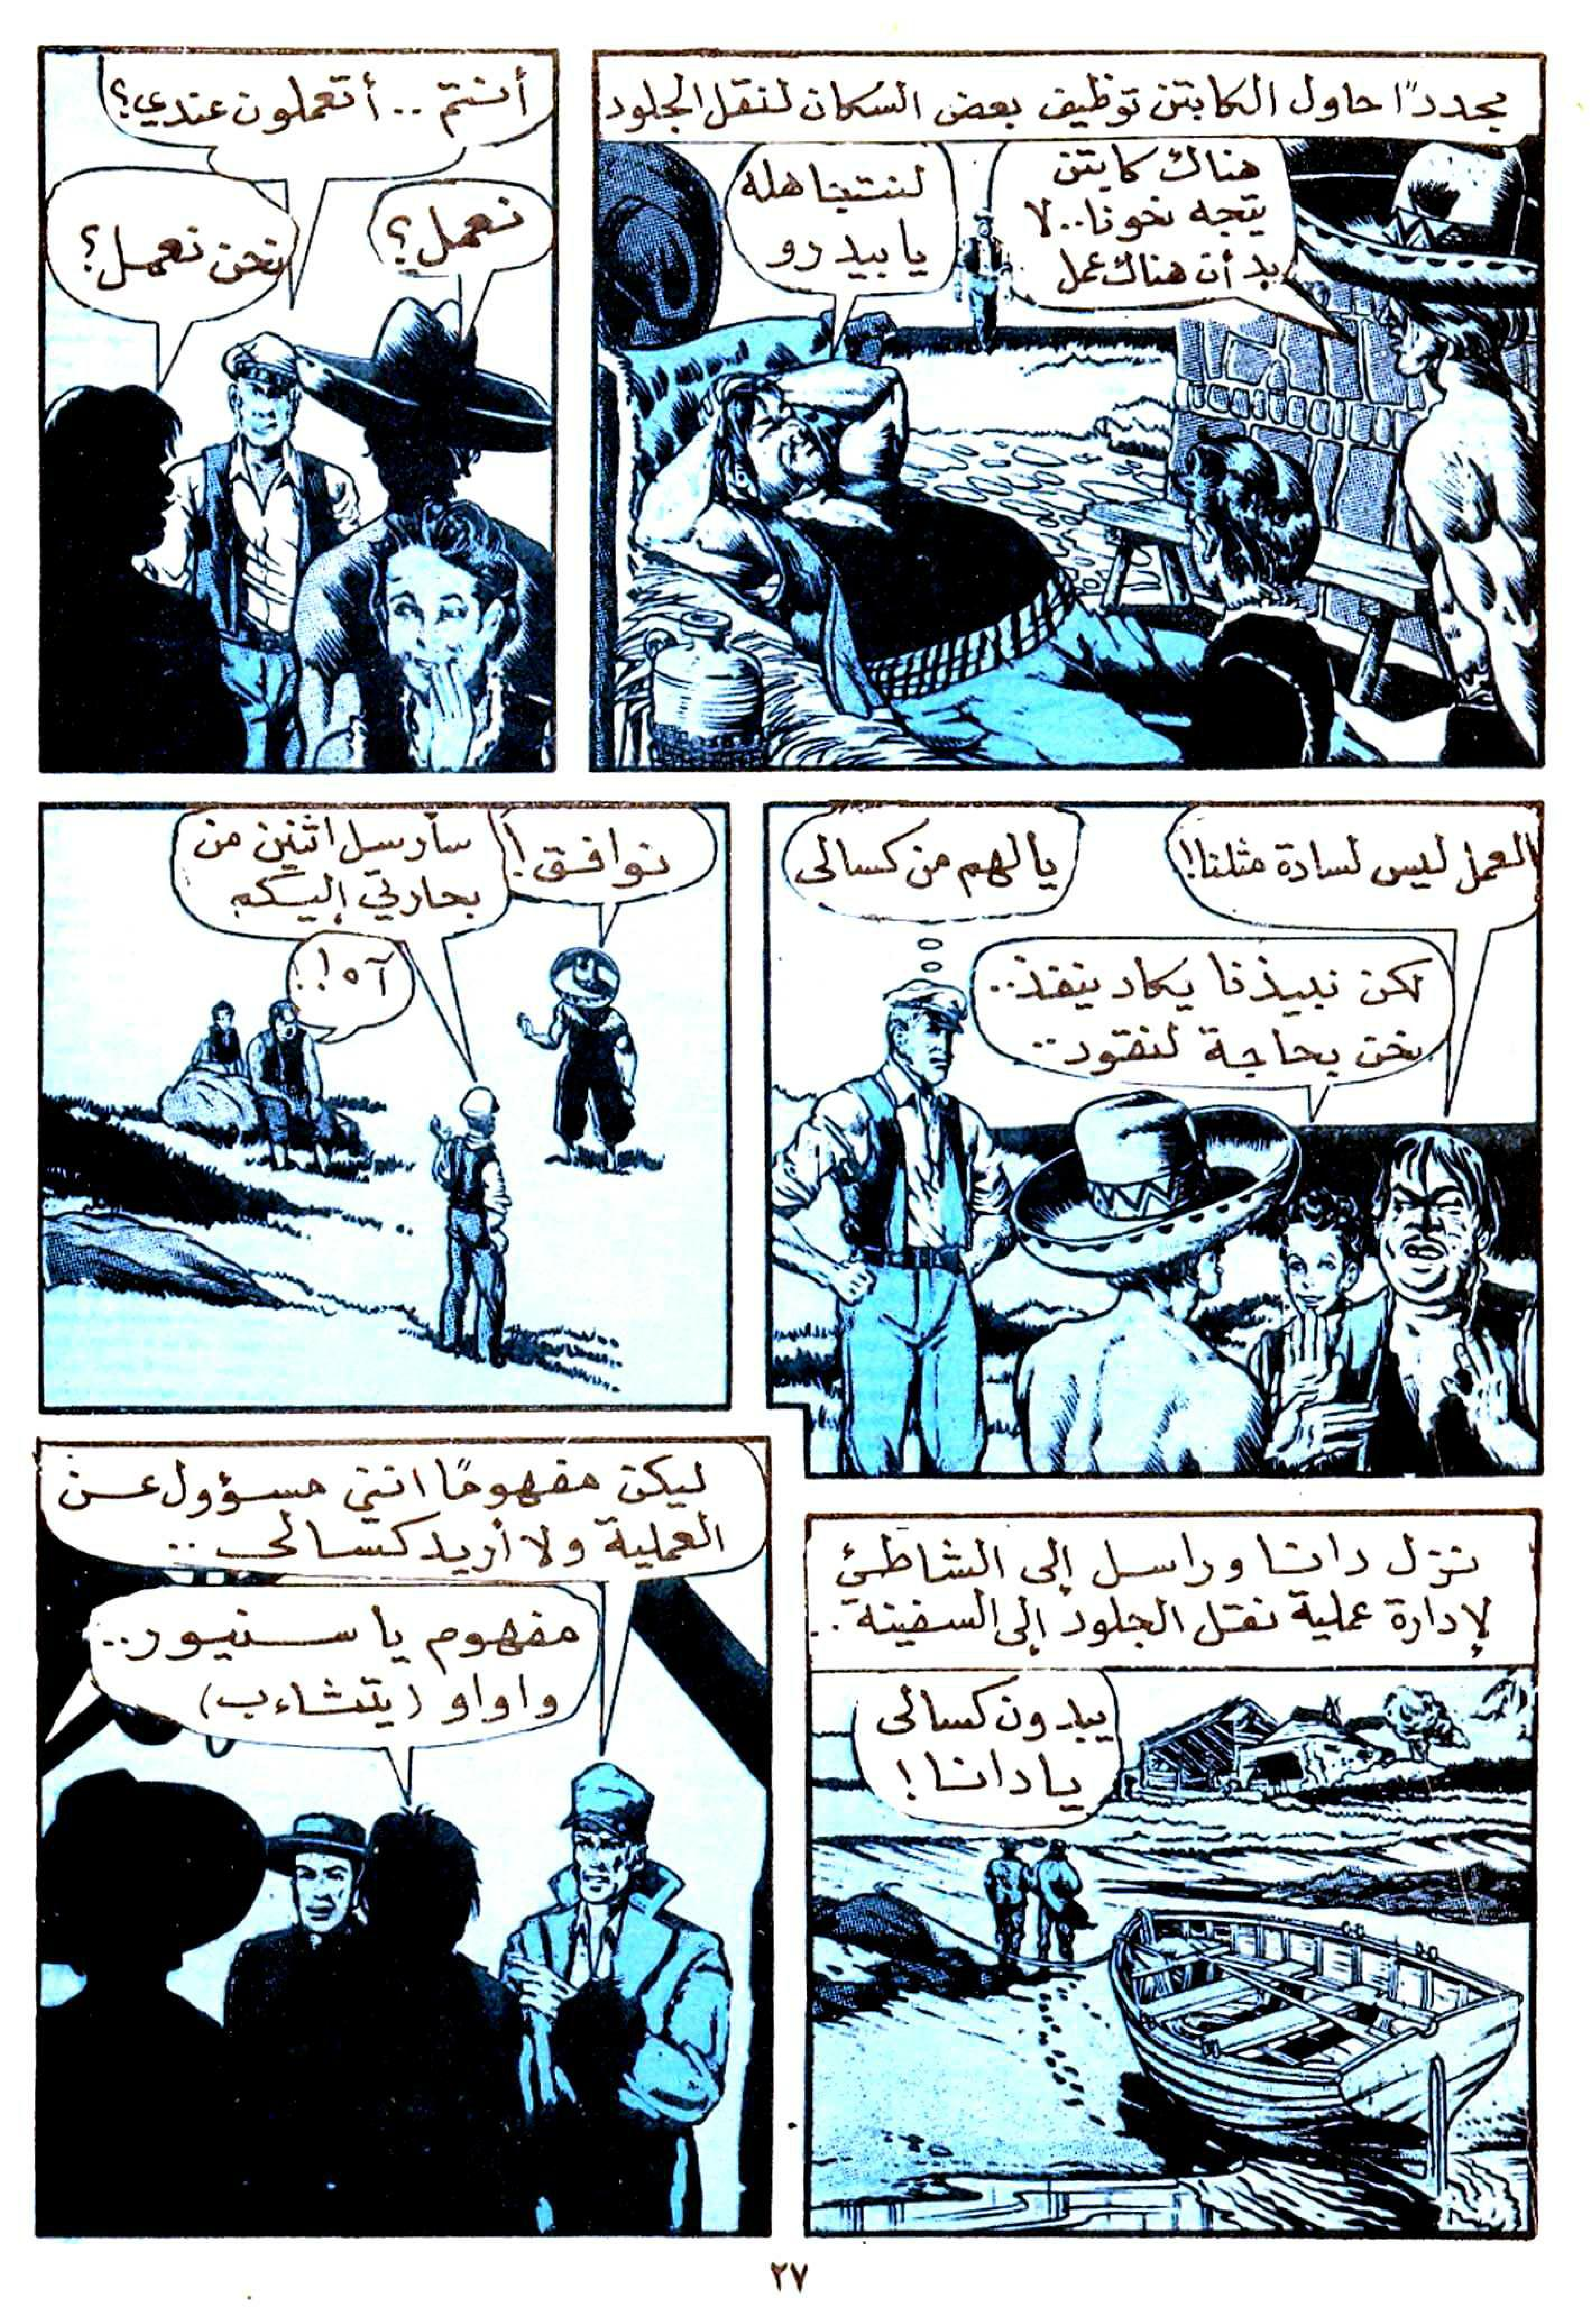 مجددًا حاول الكابتن توظيف بعض السكان لنقل الجلود
هناك كابتن
يتجه نحونا.. لا
بد أن هناك عمل
لننتبنا هله
يا بيدرو
أنتم .. أتعملون عندي؟
نعمل؟
نحن نعمل؟
العمل ليس لسادة مثلنا!
يا لهم من كسالى
لكن نبيذنا يكاد ينفذ..
نحن بحاجة لنقود..
نوافق!
سأرسل اثنين من
بحارتي إليكم
آه!!
نزل دانا وراسل إلى الشاطئ
لإدارة عملية نقل الجلود إلى السفينة..
يبدون كسالى
يا دانا!
ليكن مفهومًا انني مسؤول عن
العملية ولا أريد كسالى ..
مفهوم يا سنيور..
واواو (يتثاءب)
٢٧